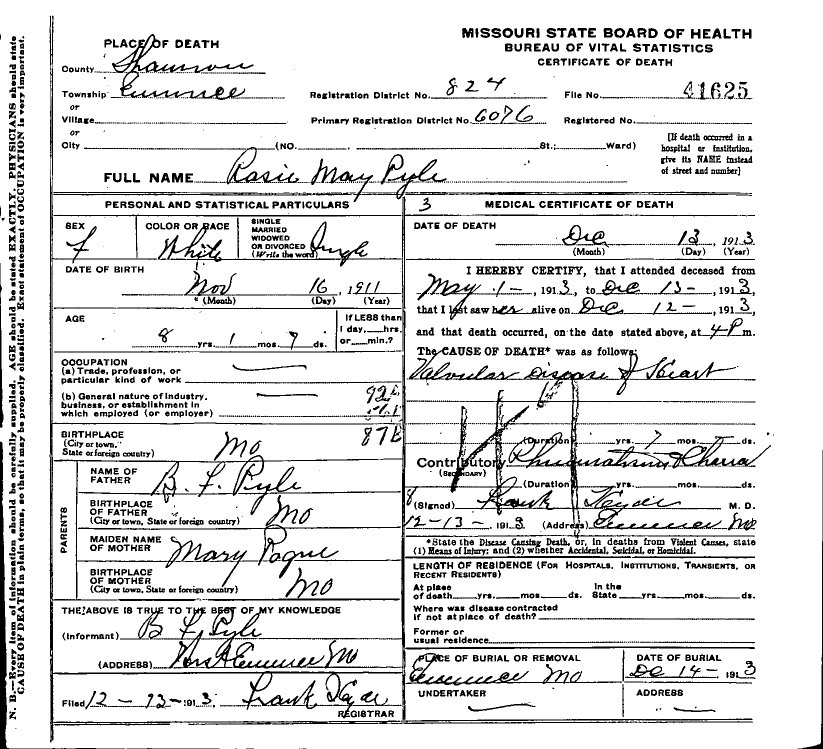 MISSOURI STATE BOARD OF HEALTH
BUREAU OF VITAL STATISTICS
CERTIFICATE OF DEATH
PLACE OF DEATH
County Shannon
Township Eminence
or
Village
or
City (NO. St.; Ward)
Registration District No. 824
File No. 41625
Primary Registration District No. 6076
Registered No.
[If death occurred in a hospital or institution, give its NAME instead of street and number]
FULL NAME Rosie May Pyle
PERSONAL AND STATISTICAL PARTICULARS
SEX F
COLOR OR RACE White
SINGLE MARRIED WIDOWED OR DIVORCED (Write the word) Single
DATE OF BIRTH Nov 16, 1911
(Month) (Day) (Year)
AGE 8 yrs. 1 mos. 7 ds.
If LESS than 1 day, hrs. or min.?
OCCUPATION
(a) Trade, profession, or particular kind of work
(b) General nature of industry, business, or establishment in which employed (or employer)
87b
BIRTHPLACE
(City or town, State or foreign country) Mo
PARENTS
NAME OF FATHER B. F. Pyle
BIRTHPLACE OF FATHER
(City or town, State or foreign country) Mo
MAIDEN NAME OF MOTHER Mary Pogue
BIRTHPLACE OF MOTHER
(City or town, State or foreign country) Mo
THE ABOVE IS TRUE TO THE BEST OF MY KNOWLEDGE
(Informant) B F Pyle
(ADDRESS) Eminence Mo
Filed 12-13-1913. Frank Hyde
REGISTRAR
3 MEDICAL CERTIFICATE OF DEATH
DATE OF DEATH Dec 13, 1913
(Month) (Day) (Year)
I HEREBY CERTIFY, that I attended deceased from
May 1-, 1913, to Dec 13-, 1913,
that I last saw her alive on Dec 12-, 1913,
and that death occurred, on the date stated above, at 4 P m.
The CAUSE OF DEATH* was as follows:
Valvular Disease of Heart
(Duration) yrs. 7 mos. ds.
Contributory Rheumatism Chorea
(SECONDARY)
(Duration) yrs. mos. ds.
(Signed) Frank Hyde M. D.
12-13-1913 (Address) Eminence Mo
*State the Disease Causing Death, or, in deaths from Violent Causes, state
(1) Means of Injury; and (2) whether Accidental, Suicidal, or Homicidal.
LENGTH OF RESIDENCE (For Hospitals, Institutions, Transients, or Recent Residents)
At place of death yrs. mos. ds. In the State yrs. mos. ds.
Where was disease contracted if not at place of death?
Former or usual residence
PLACE OF BURIAL OR REMOVAL Eminence Mo
DATE OF BURIAL Dec 14-1913
UNDERTAKER
ADDRESS
N. B.—Every item of information should be carefully supplied. AGE should be stated EXACTLY. PHYSICIANS should state
CAUSE OF DEATH in plain terms, so that it may be properly classified. Exact statement of OCCUPATION is very important.